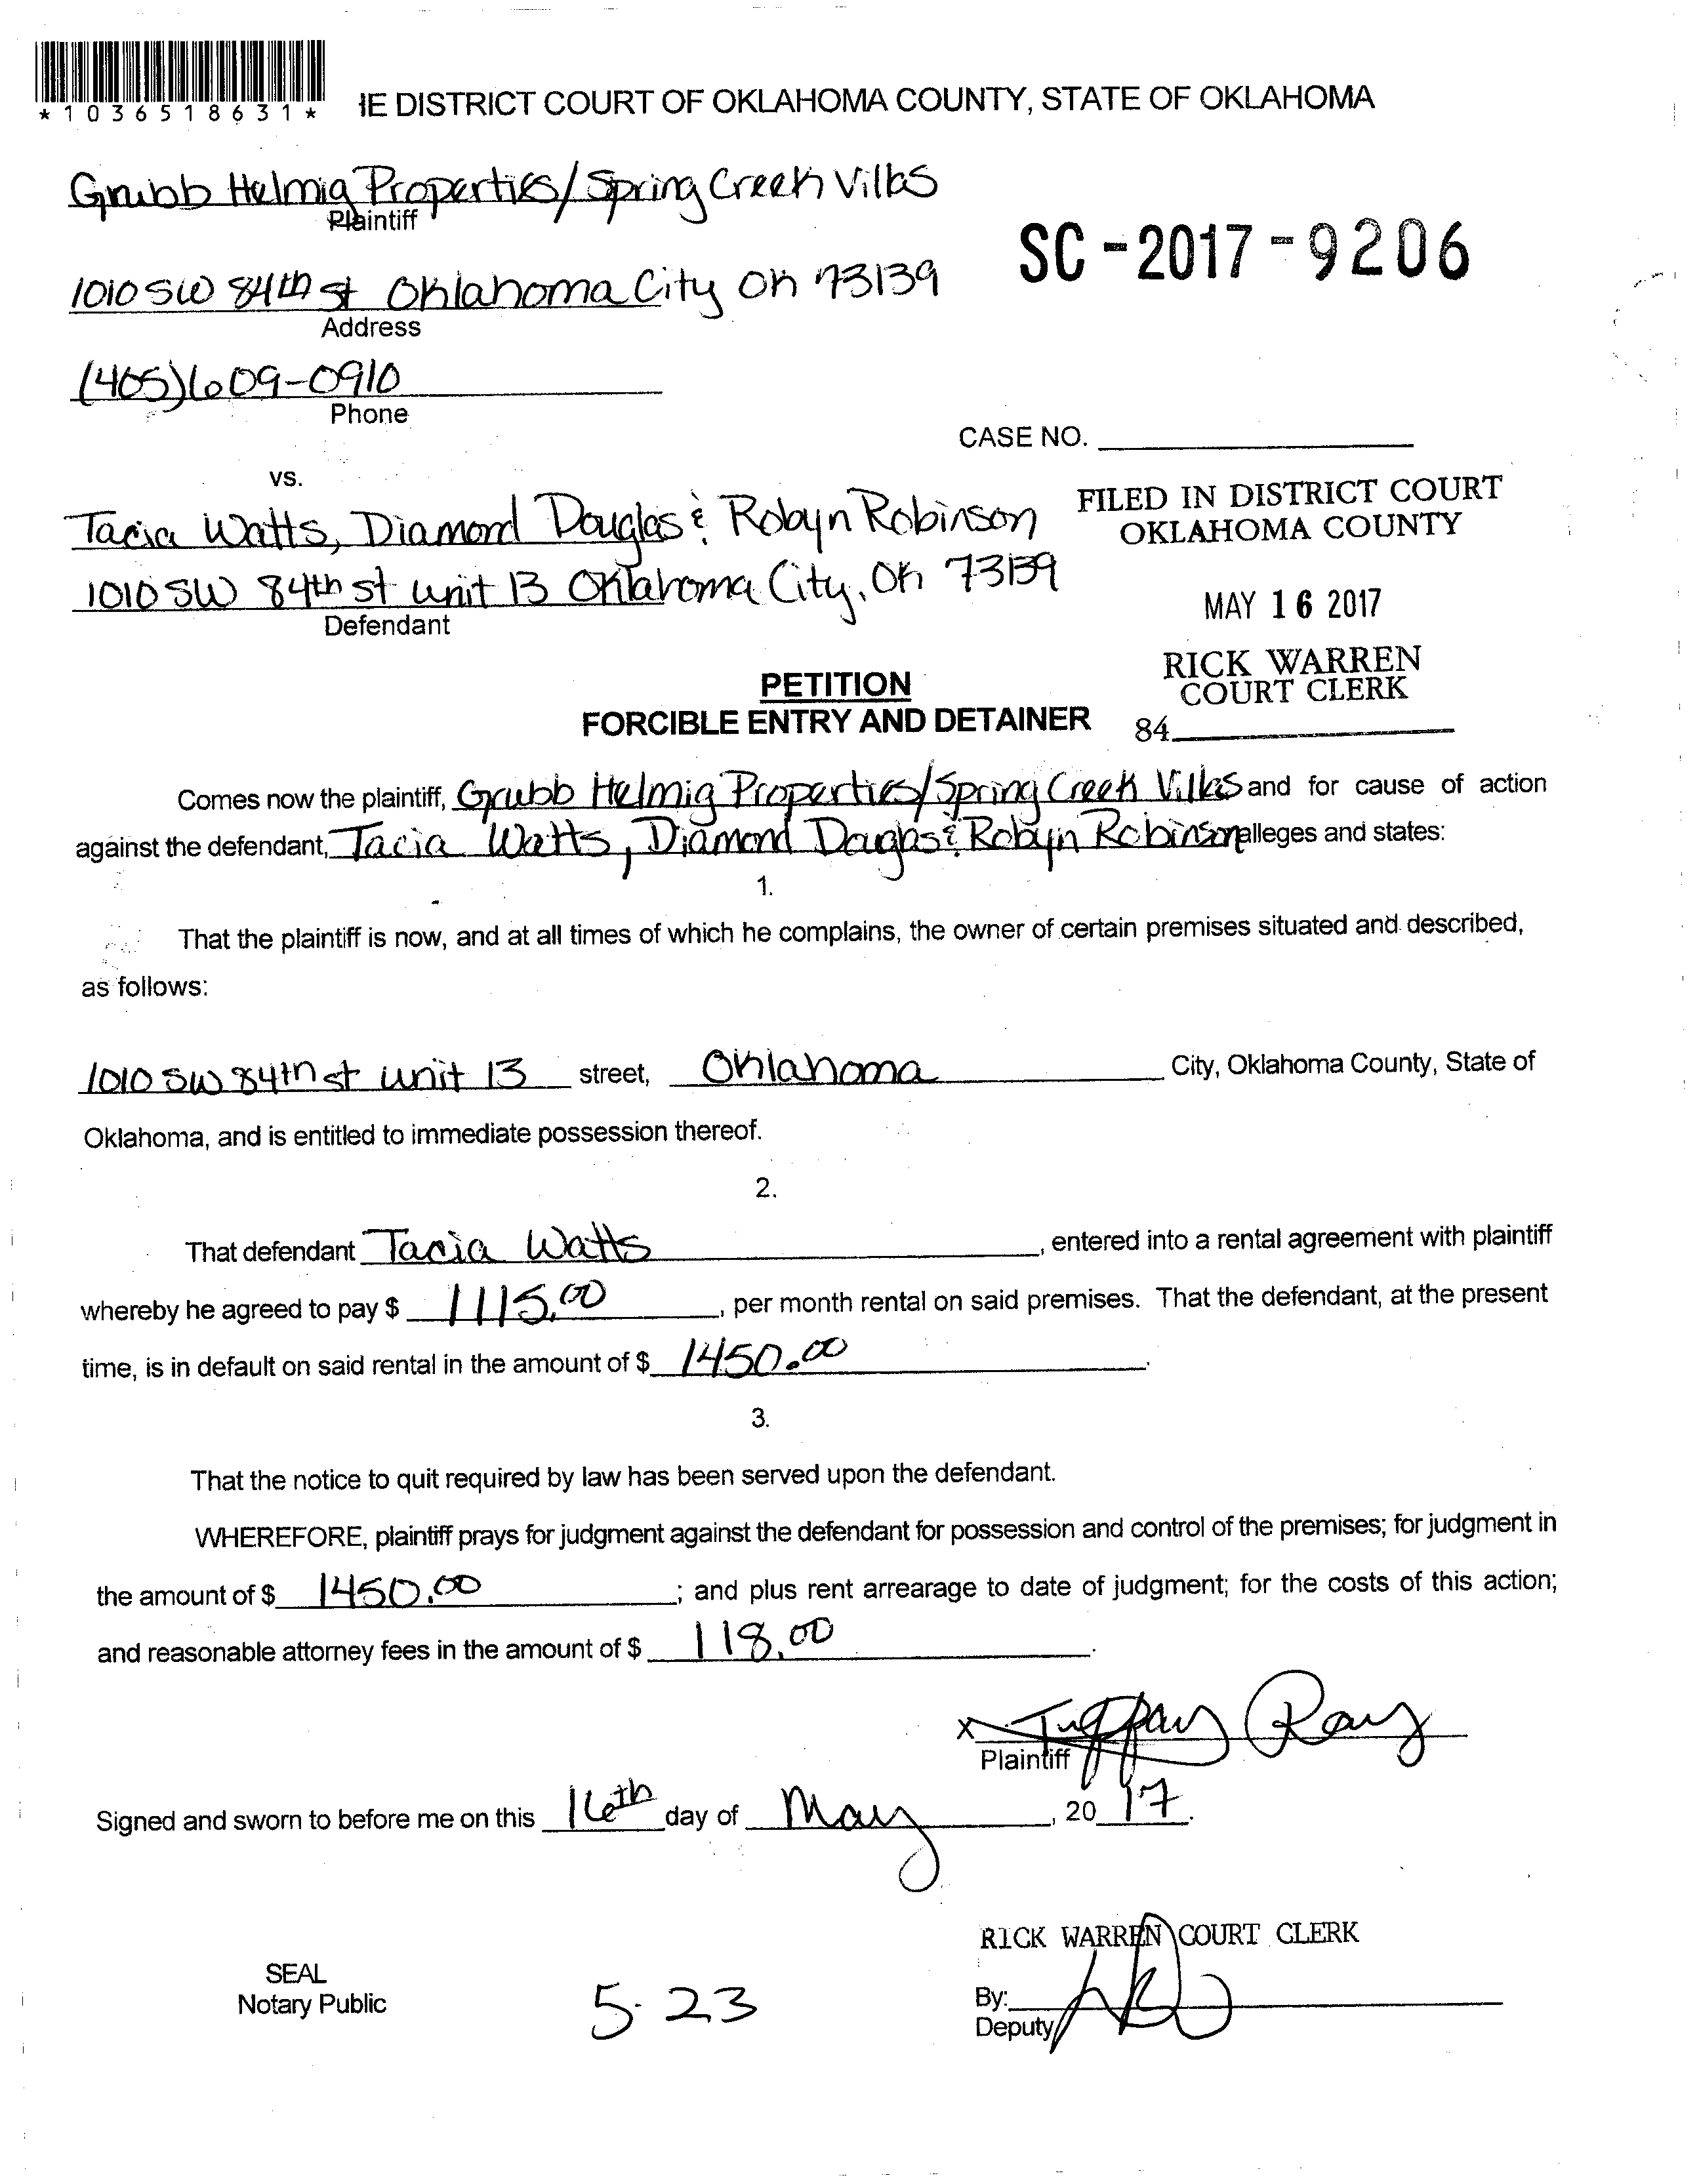 *1036518631*
IE DISTRICT COURT OF OKLAHOMA COUNTY, STATE OF OKLAHOMA
Grubb Helmig Properties/Spring Creek Villas
Plaintiff
SC-2017-9206
1010 SW 84th st Oklahoma City Ok 73139
Address
(405)609-0910
Phone
CASE NO.
vs.
Tacia Watts, Diamond Douglas & Robyn Robinson
1010 SW 84th st unit 13 Oklahoma City, Ok 73139
Defendant
FILED IN DISTRICT COURT
OKLAHOMA COUNTY
MAY 16 2017
RICK WARREN
COURT CLERK
84
PETITION
FORCIBLE ENTRY AND DETAINER
Comes now the plaintiff, Grubb Helmig Properties/Spring Creek Villas and for cause of action
against the defendant, Tacia Watts, Diamond Douglas & Robyn Robinson alleges and states:
1.
That the plaintiff is now, and at all times of which he complains, the owner of certain premises situated and described,
as follows:
1010 SW 84th st unit 13 street, Oklahoma City, Oklahoma County, State of
Oklahoma, and is entitled to immediate possession thereof.
2.
That defendant Tacia Watts, entered into a rental agreement with plaintiff
whereby he agreed to pay $ 1115.00, per month rental on said premises. That the defendant, at the present
time, is in default on said rental in the amount of $ 1450.00.
3.
That the notice to quit required by law has been served upon the defendant.
WHEREFORE, plaintiff prays for judgment against the defendant for possession and control of the premises; for judgment in
the amount of $ 1450.00; and plus rent arrearage to date of judgment; for the costs of this action;
and reasonable attorney fees in the amount of $ 118.00.
X Ray
Plaintiff
Signed and sworn to before me on this 16th day of May, 2017.
RICK WARREN COURT CLERK
SEAL
Notary Public
5-23
By:
Deputy